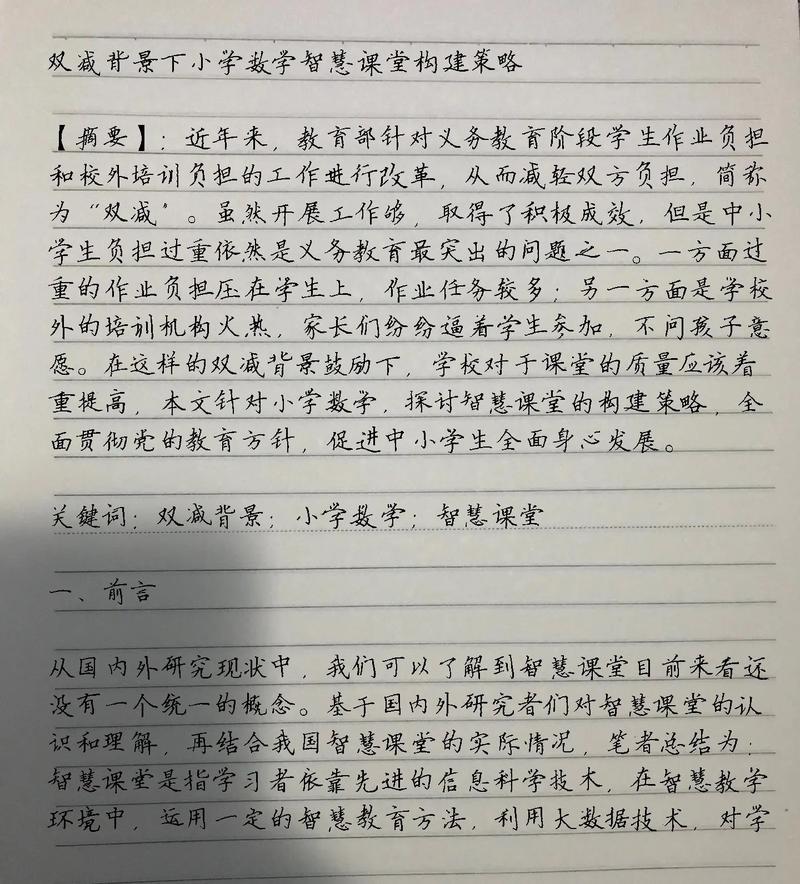 双减背景下小学数学智慧课堂构建策略
【摘要】：近年来，教育部针对义务教育阶段学生作业负担
和校外培训负担的工作进行改革，从而减轻双方负担，简称
为“双减”。虽然开展工作够，取得了积极成效，但是中小
学生负担过重依然是义务教育最突出的问题之一。一方面过
重的作业负担压在学生上，作业任务较多；另一方面是学校
外的培训机构火热，家长们纷纷逼着学生参加，不问孩子意
愿。在这样的双减背景鼓励下，学校对于课堂的质量应该着
重提高，本文针对小学数学，探讨智慧课堂的构建策略，全
面贯彻党的教育方针，促进中小学生全面身心发展。
关键词：双减背景；小学数学；智慧课堂
一、前言
从国内外研究现状中，我们可以了解到智慧课堂目前来看还
没有一个统一的概念。基于国内外研究者们对智慧课堂的认
识和理解，再结合我国智慧课堂的实际情况，笔者总结为：
智慧课堂是指学习者依靠先进的信息科学技术，在智慧教学
环境中，运用一定的智慧教育方法，利用大数据技术，对学